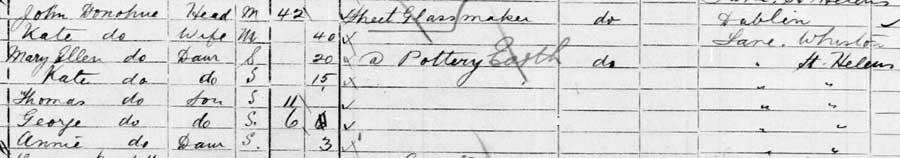 John Donohue Head M 42 Sheet Glass maker do Dublin
Kate do Wife M 40 Lanc. Whiston
Mary Ellen do Daur S 20 a Pottery Earth do " St. Helens
Kate do do S 15 " "
Thomas do Son S 11 " "
George do do S. 6 " "
Annie do Daur S. 3 " "